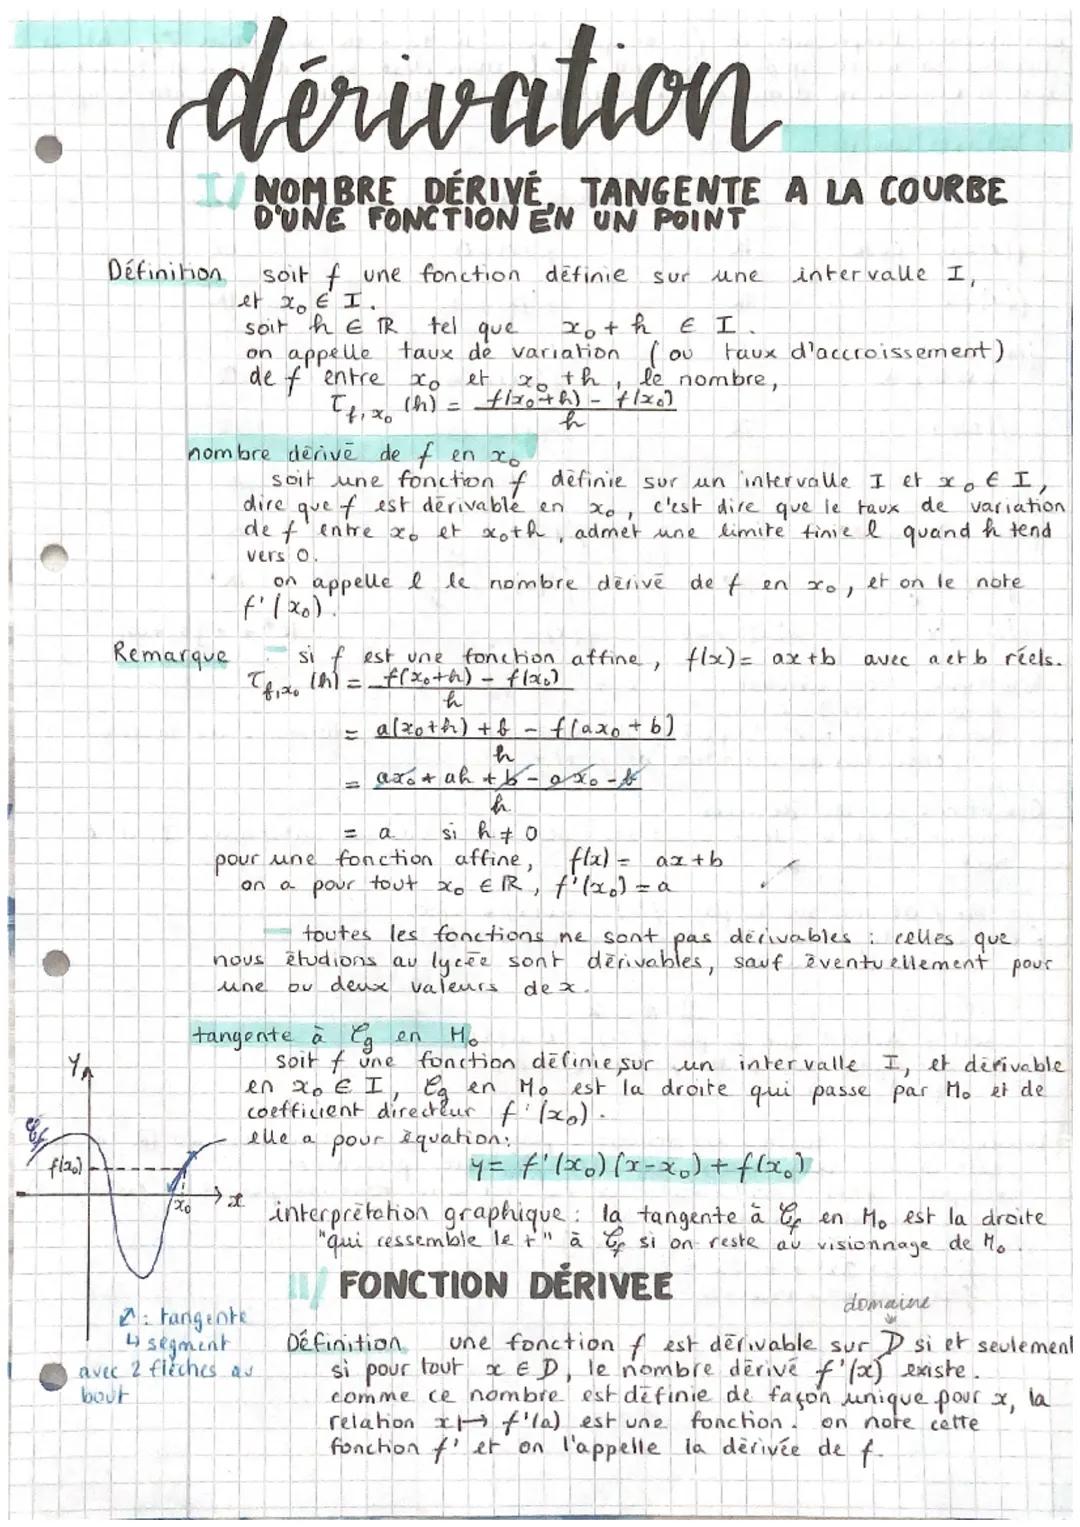 dérivation
I/ NOMBRE DÉRIVÉ, TANGENTE A LA COURBE
D'UNE FONCTION EN UN POINT
Définition soit f une fonction définie sur une intervalle I,
et x₀ ∈ I.
soit h ∈ ℝ tel que x₀ + h ∈ I.
on appelle taux de variation (ou taux d'accroissement)
de f entre x₀ et x₀ + h, le nombre,
τ_{f,x₀}(h) = (f(x₀+h) - f(x₀)) / h
nombre dérivé de f en x₀
soit une fonction f définie sur un intervalle I et x₀ ∈ I,
dire que f est dérivable en x₀, c'est dire que le taux de variation
de f entre x₀ et x₀+h, admet une limite finie l quand h tend
vers 0.
on appelle l le nombre dérivé de f en x₀, et on le note
f'(x₀).
Remarque - si f est une fonction affine, f(x) = ax+b avec a et b réels.
τ_{f,x₀}(h) = (f(x₀+h) - f(x₀)) / h
= (a(x₀+h) + b - f(ax₀ + b)) / h
= (ax₀ + ah + b - ax₀ - b) / h
= a si h ≠ 0
pour une fonction affine, f(x) = ax+b
on a pour tout x₀ ∈ ℝ, f'(x₀) = a
- toutes les fonctions ne sont pas dérivables : celles que
nous étudions au lycée sont dérivables, sauf éventuellement pour
une ou deux valeurs de x.
tangente à Cg en M₀
soit f une fonction définie sur un intervalle I, et dérivable
en x₀ ∈ I, Cg en M₀ est la droite qui passe par M₀ et de
coefficient directeur f'(x₀).
elle a pour équation:
y = f'(x₀)(x-x₀) + f(x₀)
y
Cf
f(x₀)
x₀
x
interprétation graphique : la tangente à Cf en M₀ est la droite
"qui ressemble le +" à Cf si on reste au visionnage de M₀.
↗ : tangente
↳ segment
avec 2 flèches au
bout
II/ FONCTION DÉRIVEE
domaine
Définition une fonction f est dérivable sur D si et seulement
si pour tout x ∈ D, le nombre dérivé f'(x) existe.
comme ce nombre est définie de façon unique pour x, la
relation x ↦ f'(a) est une fonction. on note cette
fonction f' et on l'appelle la dérivée de f.